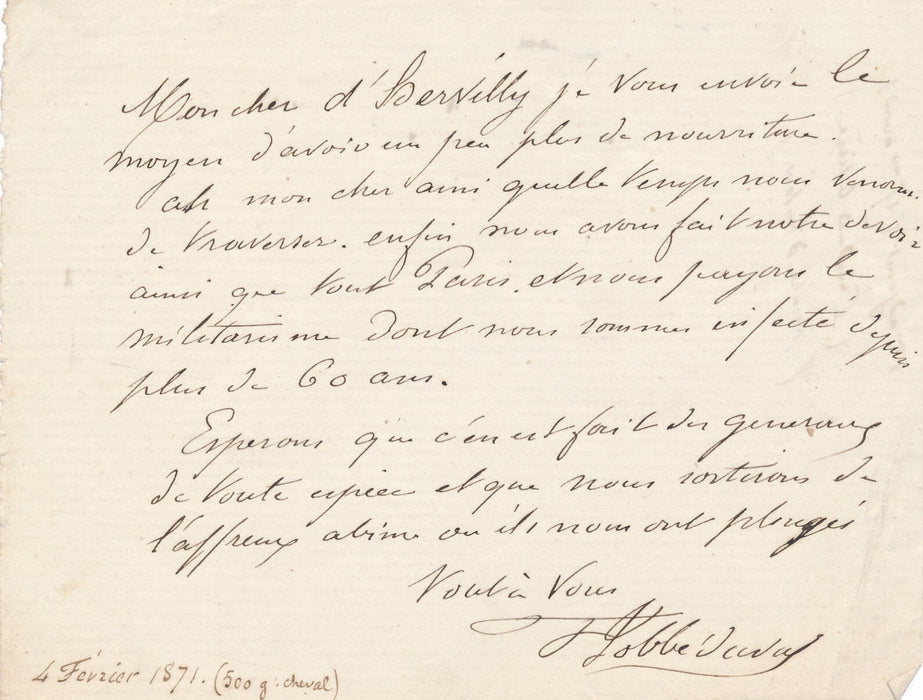 Mon cher d'Hervilly je vous envoie le
moyen d'avoir un peu plus de nourriture.
ah mon cher ami quelle temps nous venons
de traverser. enfin nous avons fait notre devoir
ainsi que tout Paris. et nous payons le
militarisme dont nous sommes infecté depuis
plus de 60 ans.
Esperons que c'en est fait des generaux
de toute espèce et que nous sortirons de
l'affreux abime ou ils nous ont plongés
Tout à Vous
4 Février 1871. (500 g. cheval)